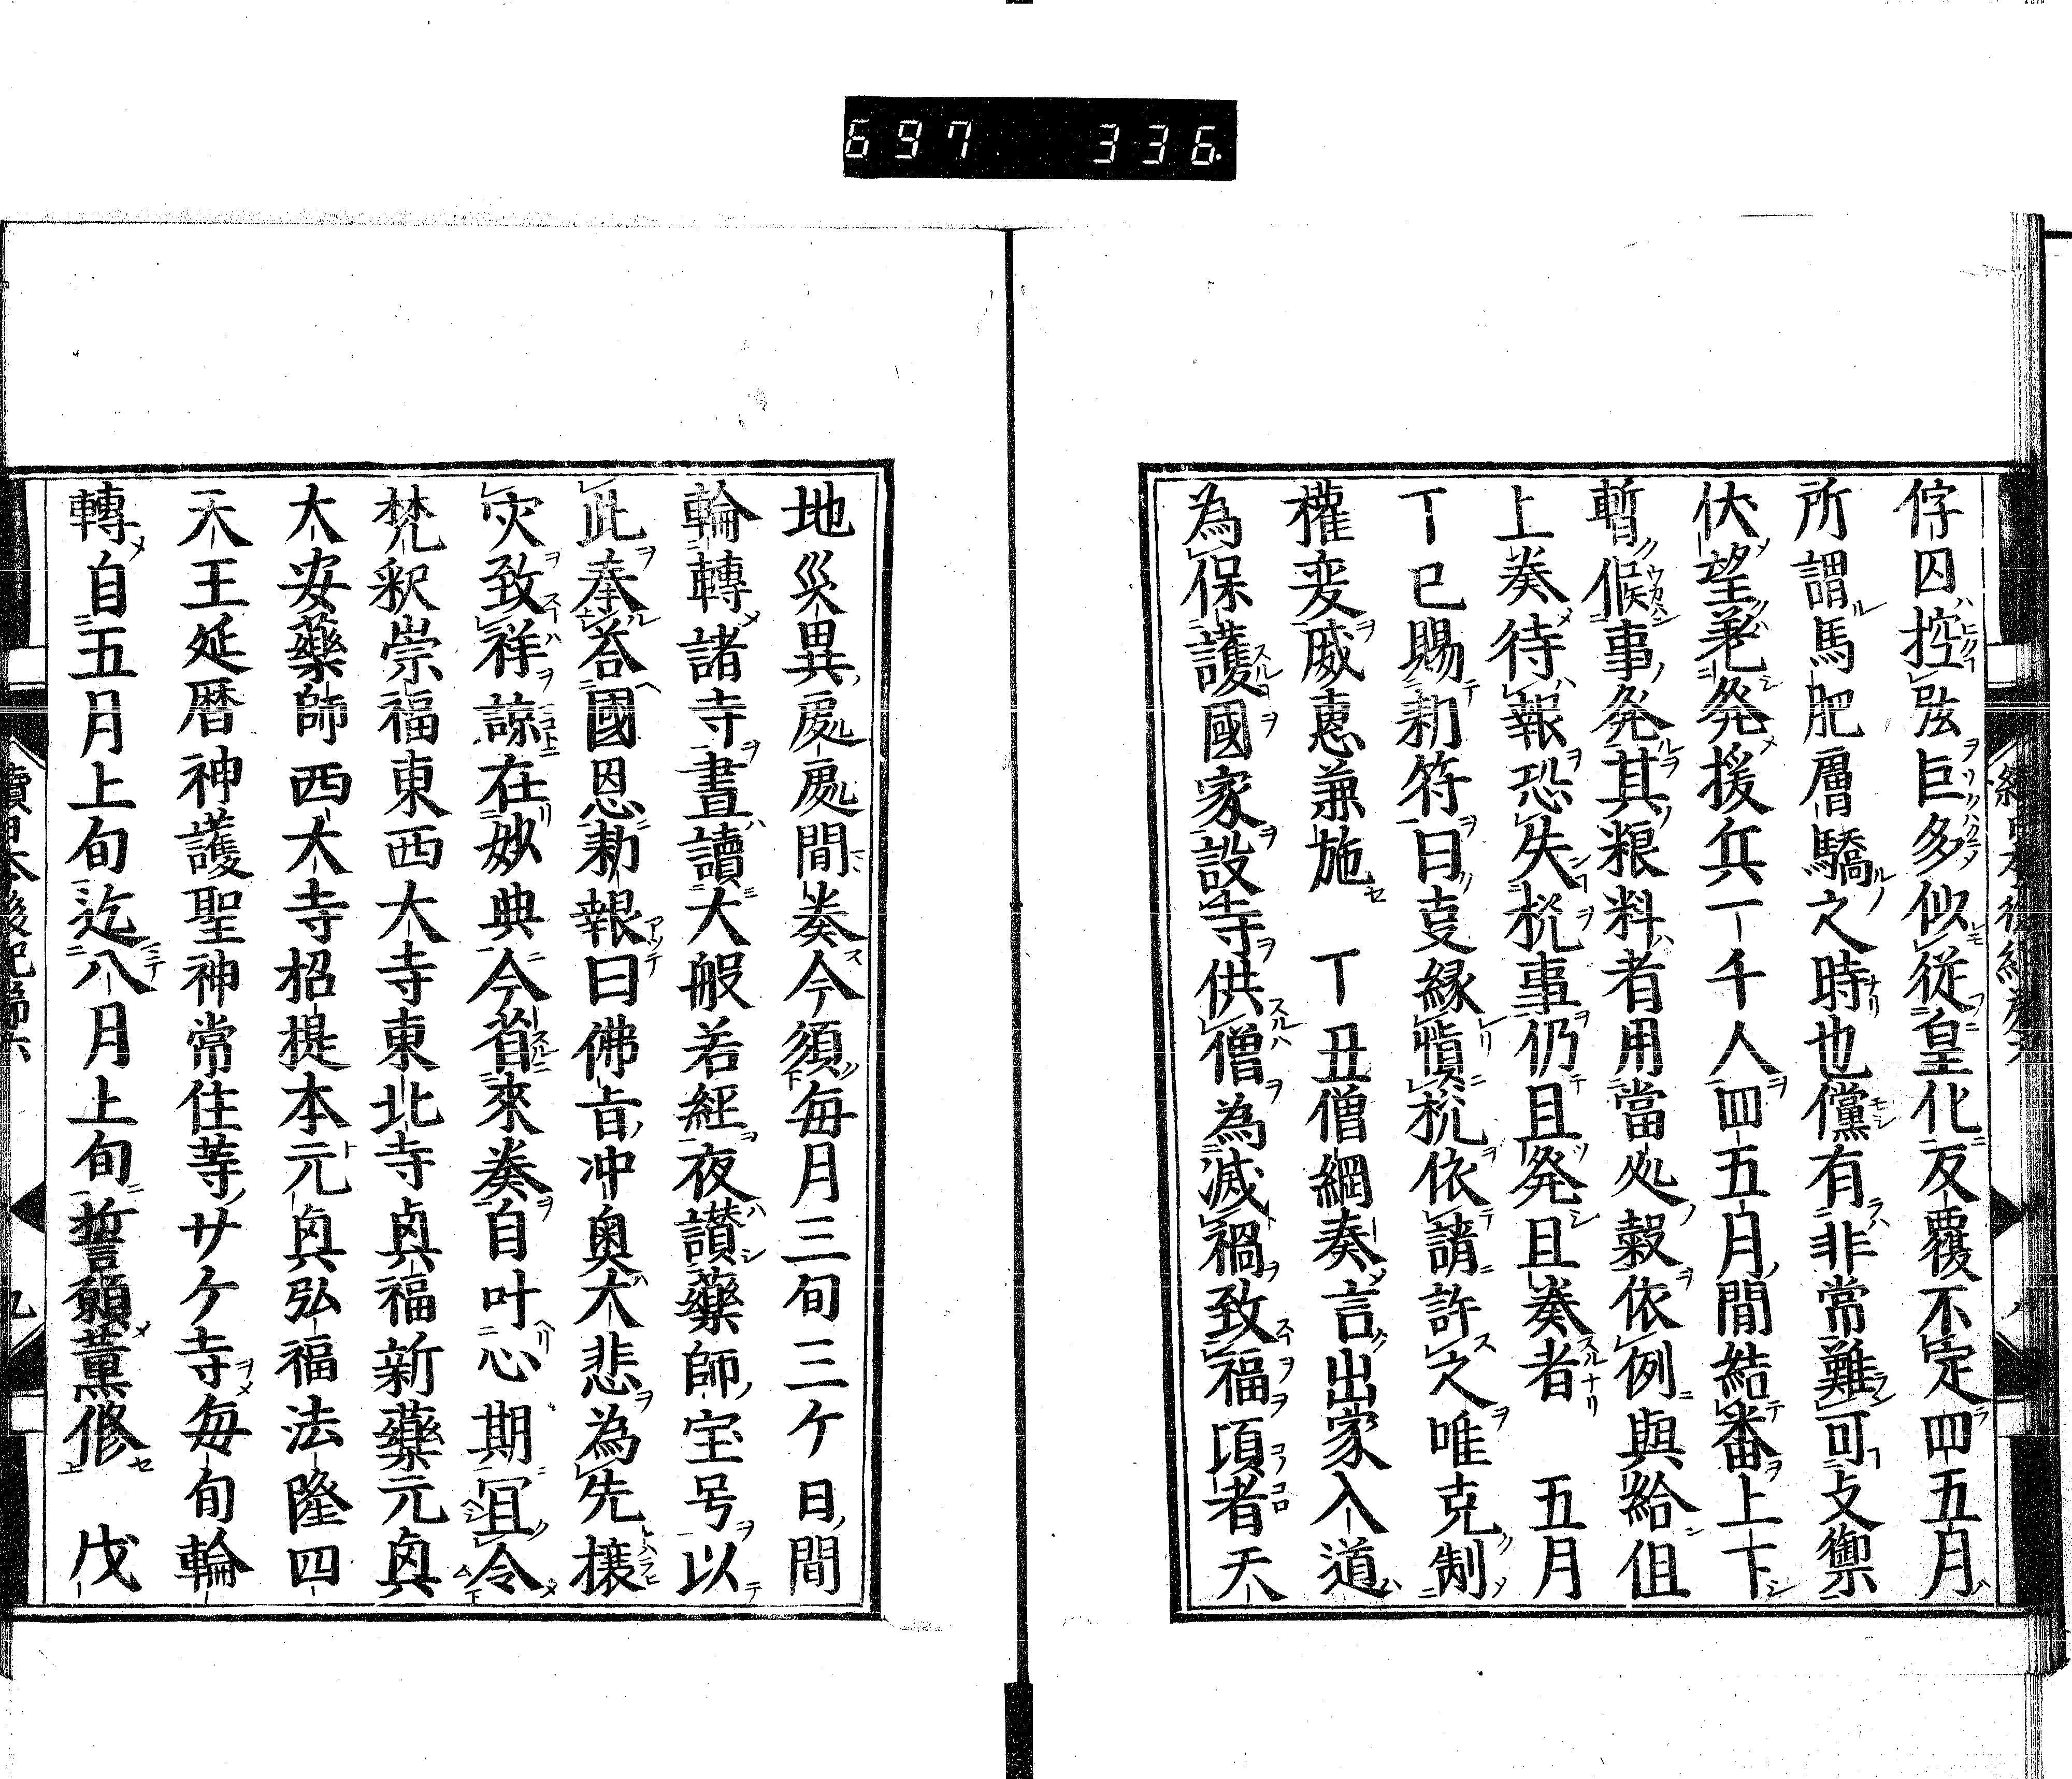 697 336
俘囚控弦巨多似従皇化反覆不定四五月
所謂馬肥虜驕之時也儻有非常難可支禦
伏望差発援兵一千人四五月間結番上下
暫候事発其粮料者用當処穀依例與給但
上奏待報恐失機事仍且発且奏者 五月
丁巳賜勅符曰夏縁慎機依請許之唯克制
權変威恵兼施 丁丑僧綱奏言出家入道
為保護國家設寺供僧為滅禍致福頃者天
地災異處處間奏今須毎月三旬三ケ日間
輪轉諸寺晝讀大般若經夜讃藥師宝号以
此奉荅國恩勅報曰佛旨冲奥大悲為先攘
灾致祥諒在妙典今省來奏自叶心期冝令
梵釈崇福東西大寺東北寺眞福新藥元眞
大安藥師西大寺招提本元眞弘福法隆四
天王延暦神護聖神常住䓁サケ寺毎旬輪
轉自五月上旬迄八月上旬誓願薫修 戊
續日本後紀第六 九